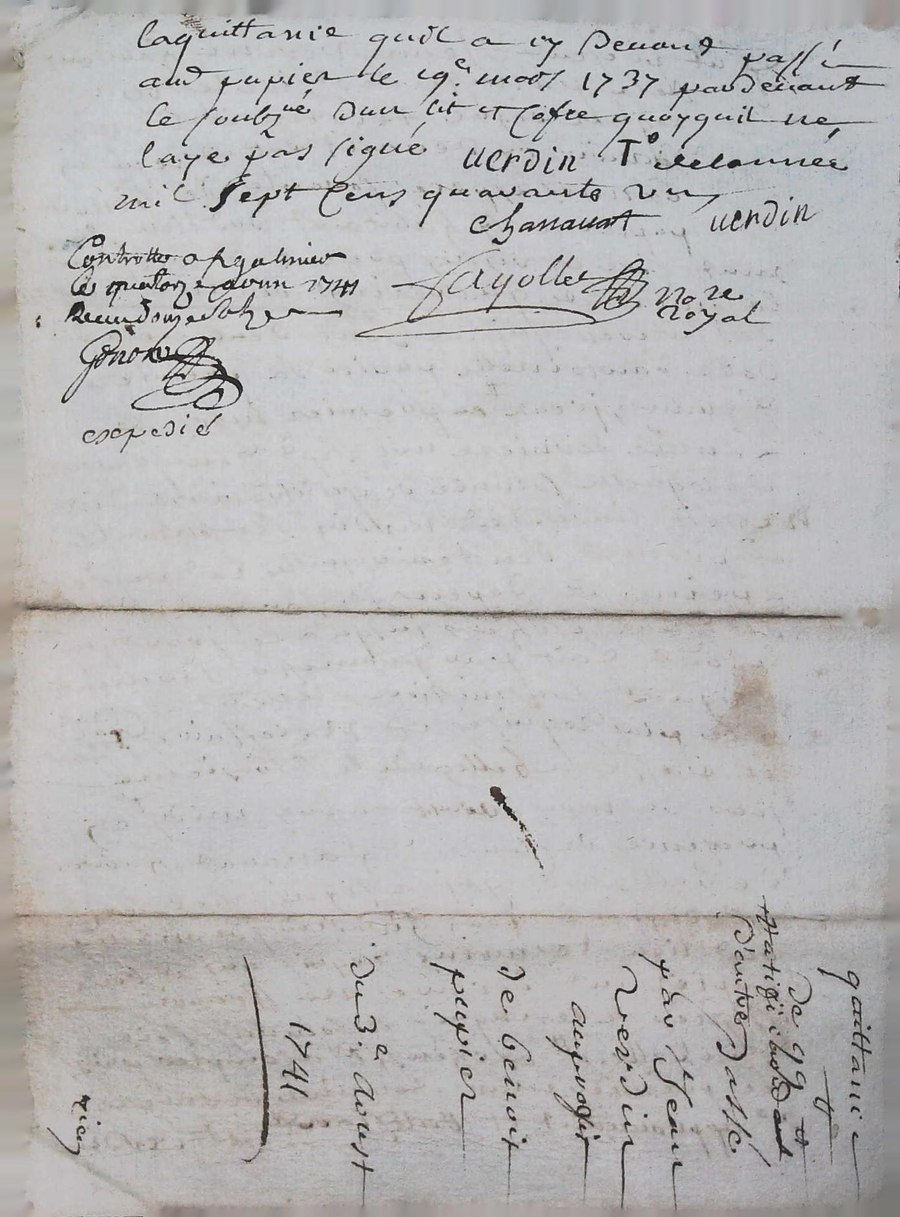 laquittanie quil a cy devant passé
aud pupier le 19e. mars 1737 pardevant
le soubzné dun lit et cofre quoyquil ne
laye pas signé verdin To de lannée
mil sept cens quarante un
chanavat verdin
Controlle a
le quatorze avril 1741
Receu douze sols
Fayolle nore
royal
expedié
quittanie
de 99 tt
et
d'autre passé
par Jean
verdin
au proffit
de benoit
pupier
du 3e aoust
1741